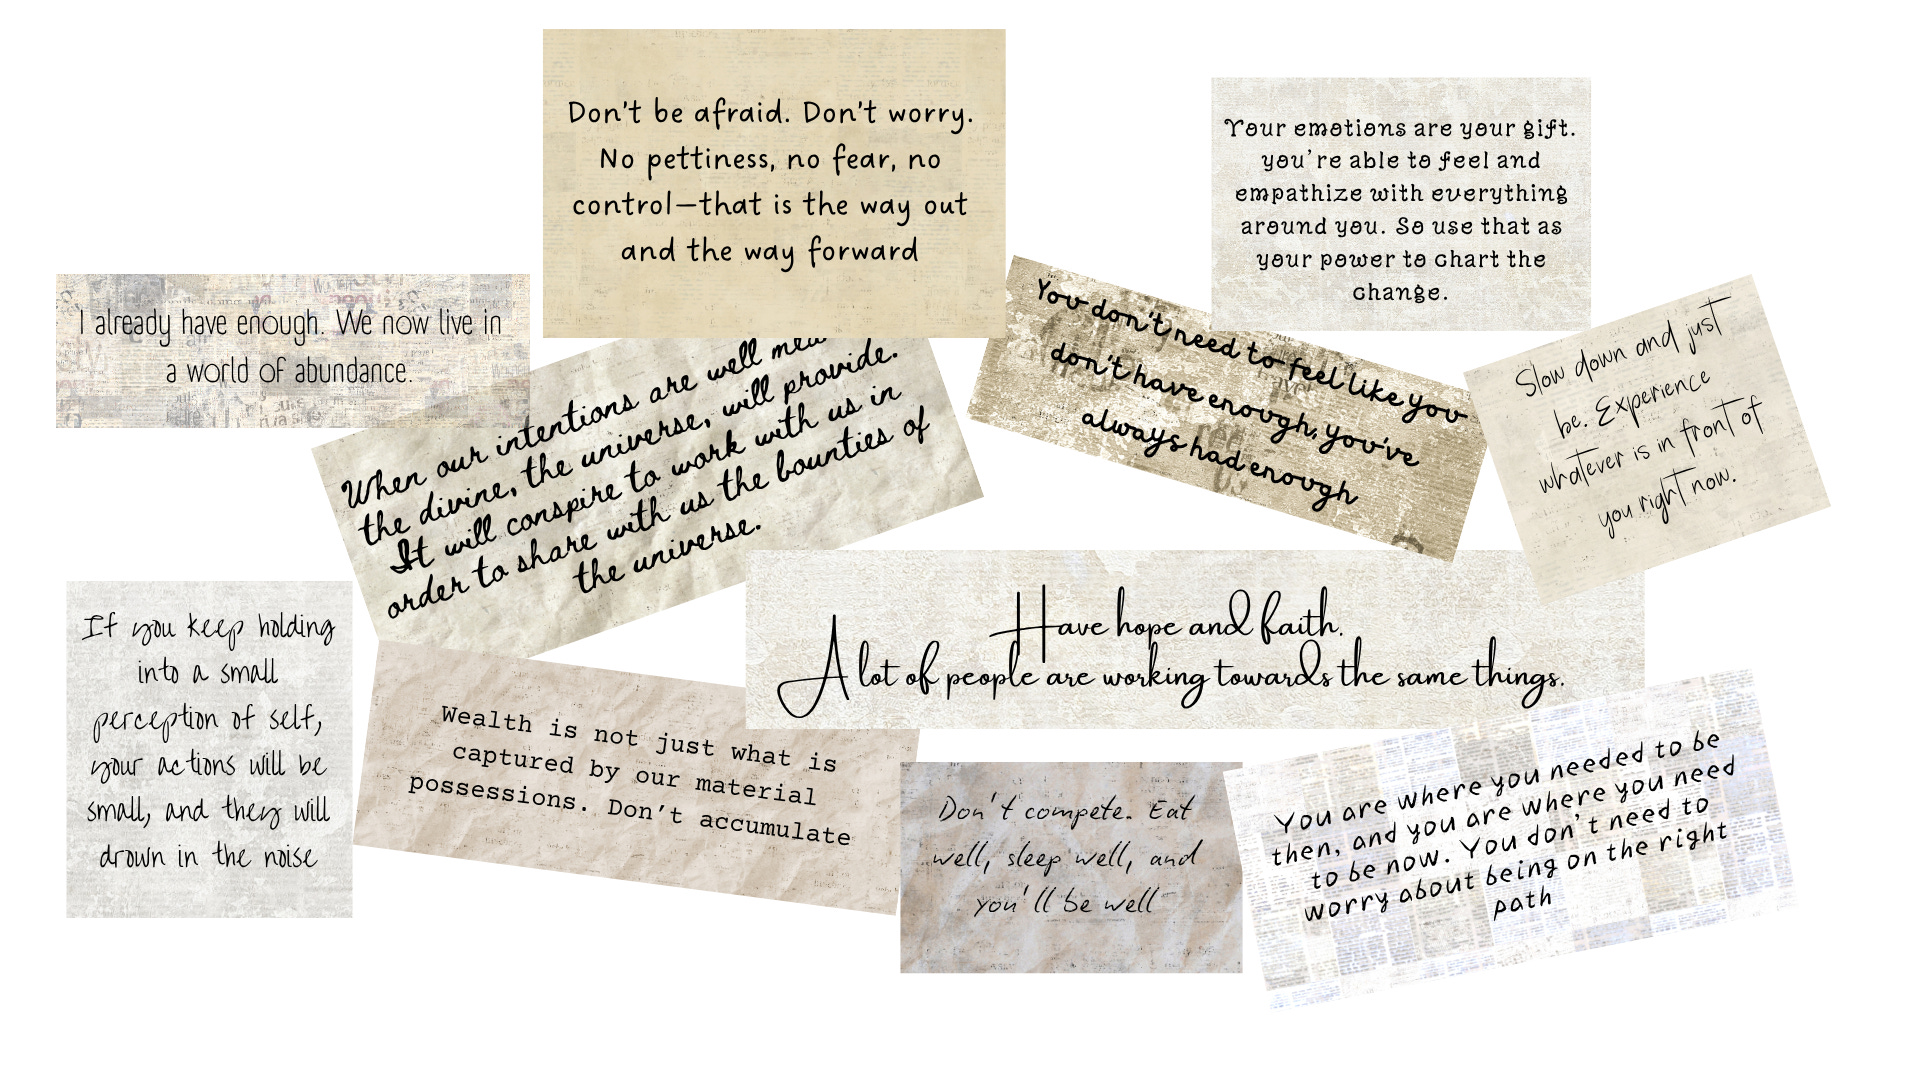 Don't be afraid. Don't worry.
No pettiness, no fear, no
control—that is the way out
and the way forward
Your emotions are your gift.
you're able to feel and
empathize with everything
around you. So use that as
your power to chart the
change.
I already have enough. We now live in
a world of abundance.
When our intentions are well
the divine, the universe, will provide.
It will conspire to work with us in
order to share with us the bounties of
the universe.
You don't need to feel like you
don't have enough, you've
always had enough
Slow down and just
be. Experience
whatever is in front of
you right now.
If you keep holding
into a small
perception of self,
your actions will be
small, and they will
drown in the noise
Have hope and faith.
A lot of people are working towards the same things.
Wealth is not just what is
captured by our material
possessions. Don't accumulate
Don't compete. Eat
well, sleep well, and
you'll be well
You are where you needed to be
then, and you are where you need
to be now. You don't need to
worry about being on the right
path